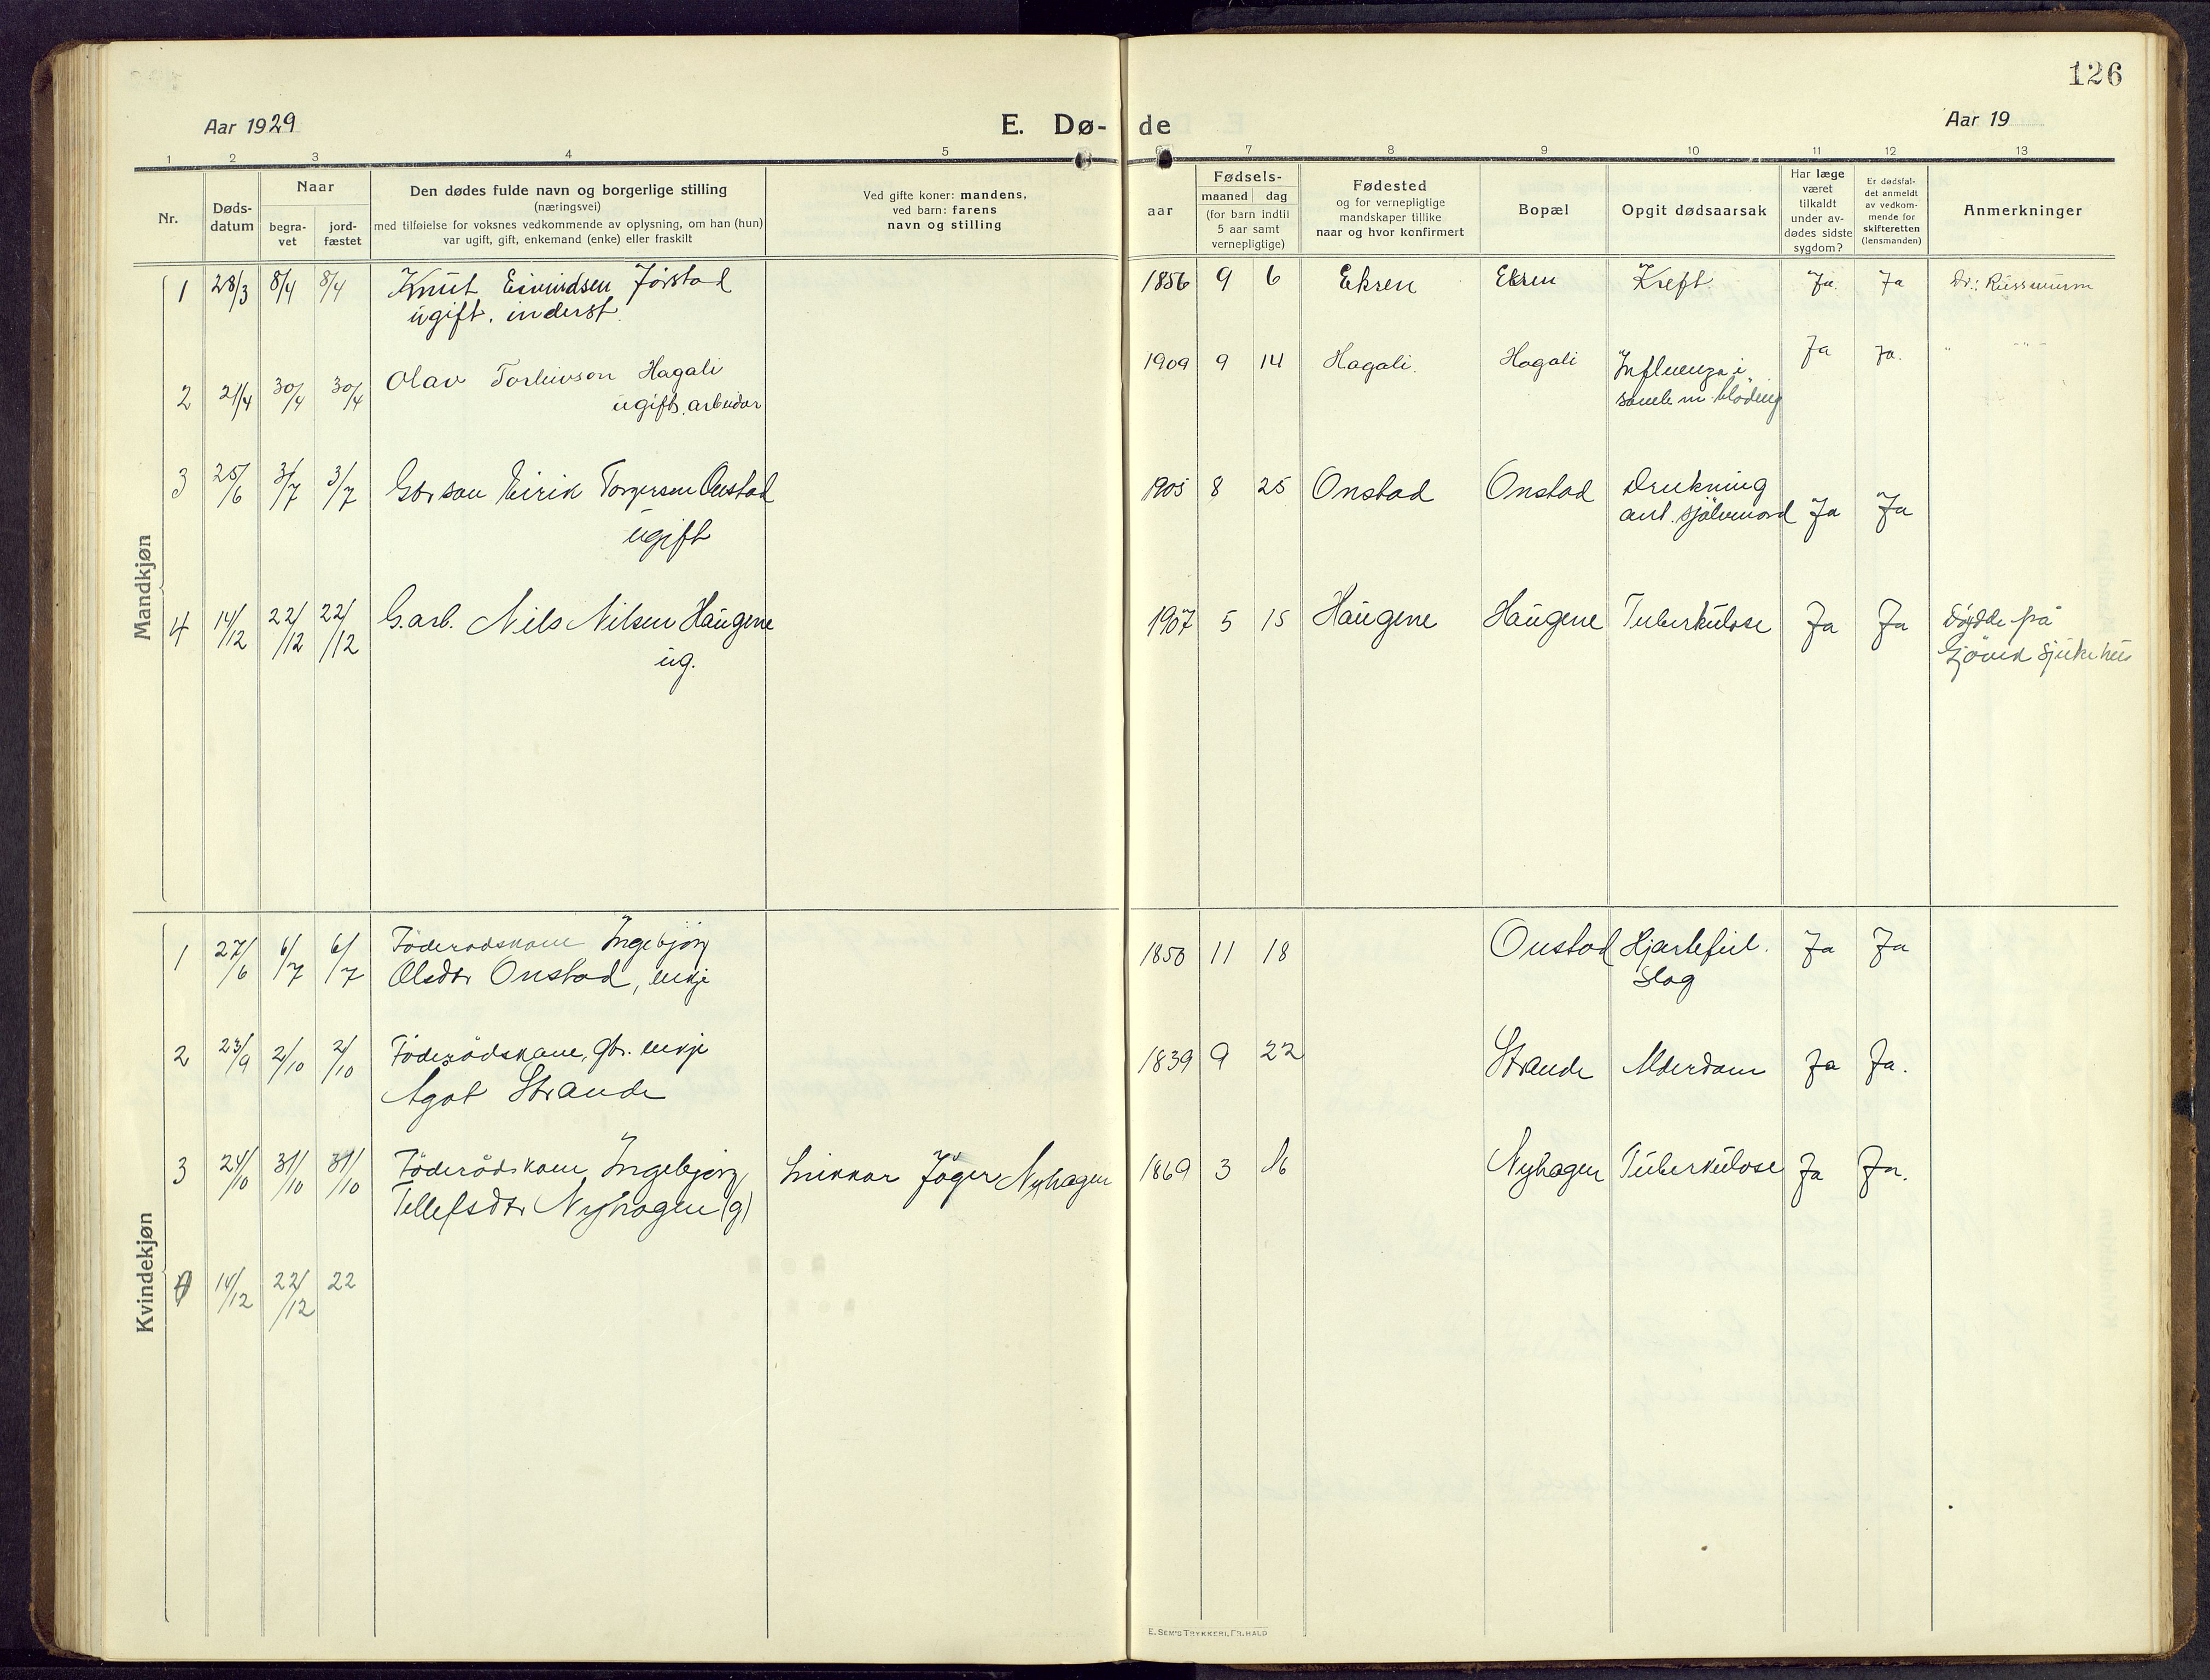 126
Aar 1929
E. Dø-
de
Aar 19
1 2 3 4 5 6 7 8 9 10 11 12 13
Nr.
Døds-
datum
Naar
begra-
vet
jord-
fæstet
Den dødes fulde navn og borgerlige stilling
(næringsvei)
med tilføielse for voksnes vedkommende av oplysning, om han (hun)
var ugift, gift, enkemand (enke) eller fraskilt
Ved gifte koner: mandens,
ved barn: farens
navn og stilling
aar
Fødsels-
maaned dag
(for barn indtil
5 aar samt
vernepligtige)
Fødested
og for vernepligtige
mandskaper tillike
naar og hvor konfirmert
Bopæl
Opgit dødsaarsak
Har læge
været
tilkaldt
under av-
dødes sidste
sygdom?
Er dødsfal-
det anmeldt
av vedkom-
mende for
skifteretten
(lensmanden)
Anmerkninger
Mandkjøn
1 28/3 8/4 8/4 Knut Eivindsen Jørstad 1856 9 6 Ekren Ekren Kreft. Ja. Ja Dr.:
ugift. inderst.
2 21/4 30/4 30/4 Olav Hagali 1909 9 14 Hagali. Hagali Influenza i Ja Ja. " - " -
ugift. arbeidar blöding
3 25/6 3/7 3/7 Gbrson Eirik Torgersen Onstad 1905 8 25 Onstad Onstad Drukning
ugift ant. sjölvmord Ja Ja
4 14/12 22/12 22/12 G.arb. Nils Nilsen Haugene 1907 5 15 Haugene Haugene Tuberkulose Ja Ja Döydde på
ug. Gjövik sjukehus
Kvindekjøn
1 27/6 6/7 6/7 Föderodskone Ingebjörg 1850 11 18 Onstad Hjartefeil. Ja Ja
Olsdtr Onstad, enkje Slag
2 23/9 2/10 2/10 Föderådskone, gbr. enkje 1839 9 22 Strande Alderdom Ja Ja.
Agot Strande
3 24/10 31/10 31/10 Föderådskone Ingebjörg Snikkar Jöger Nyhagen 1869 3 16 Nyhagen Tuberkulose Ja Ja.
Tellefsdtr Nyhagen (g)
4 14/12 22/12 22
E. SEM'S TRYKKERI, FR.HALD